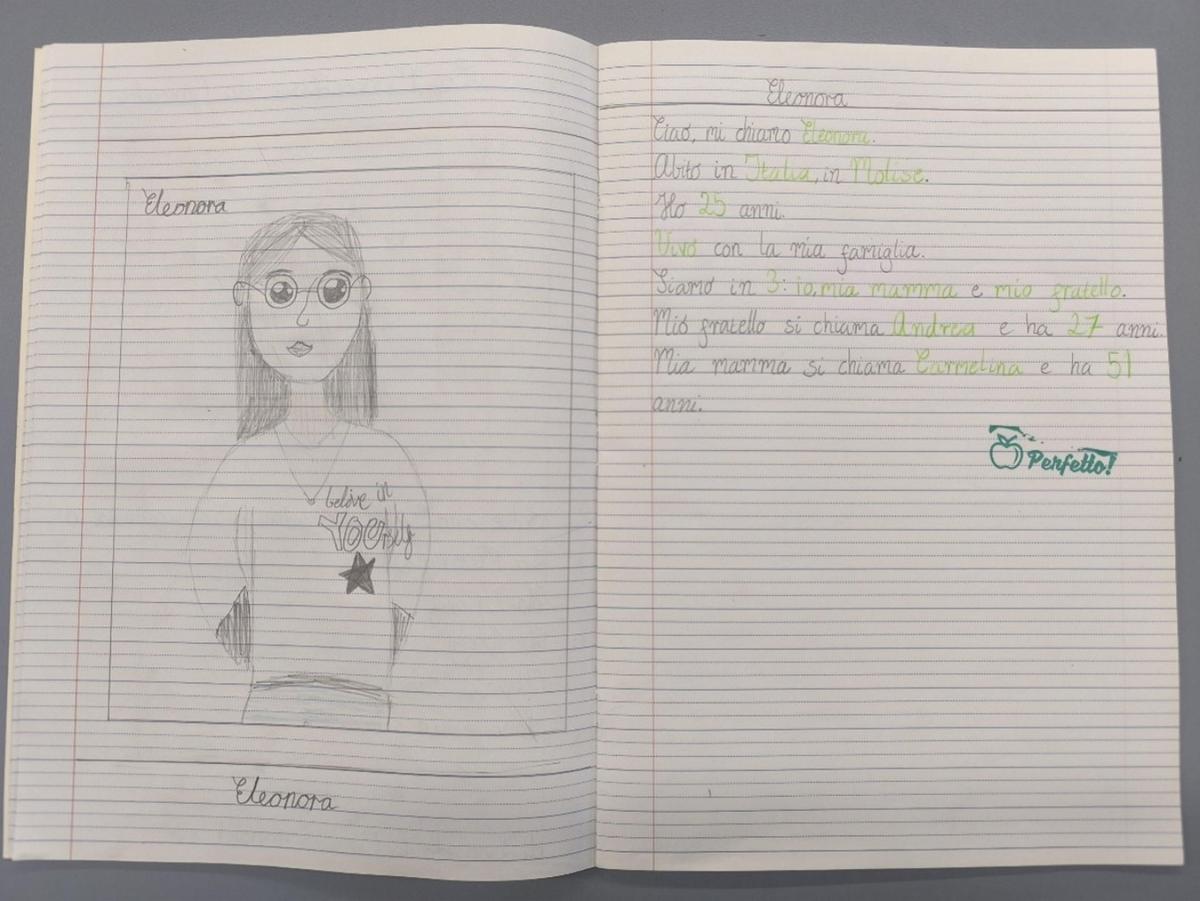 Eleonora
belive in
YOUrself
Eleonora
Eleonora
Ciao, mi chiamo Eleonora.
Abito in Italia, in Molise.
Ho 25 anni.
Vivo con la mia famiglia.
Siamo in 3: io, mia mamma e mio fratello.
Mio fratello si chiama Andrea e ha 27 anni.
Mia mamma si chiama Carmelina e ha 51
anni.
Perfetto!